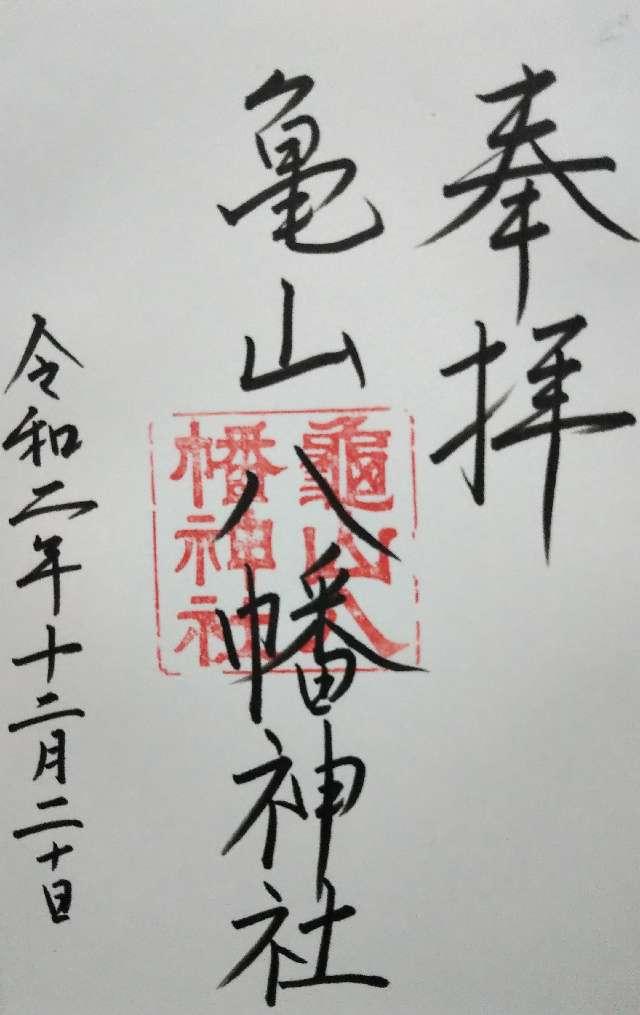 奉拝
亀山八幡神社
龜山八
幡神社
令和二年十二月二十日